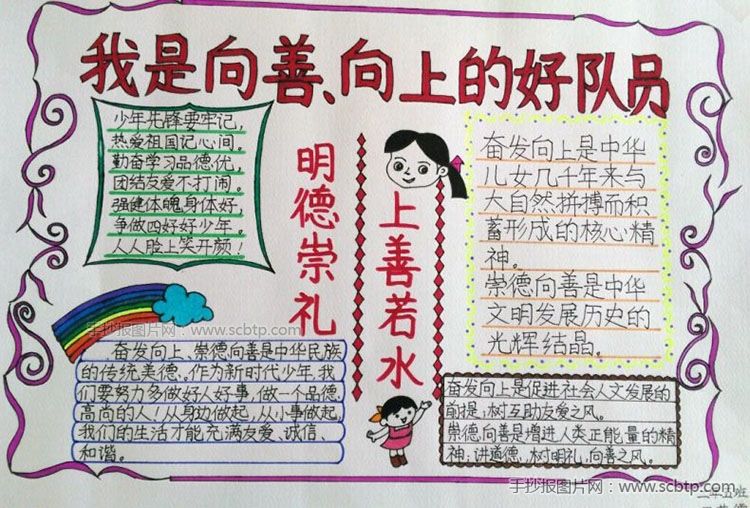 我是向善、向上的好队员
少年先锋要牢记，
热爱祖国记心间。
勤奋学习品德优，
团结友爱不打闹。
强健体魄身体好，
争做四好好少年。
人人脸上笑开颜！
明德崇礼
上善若水
奋发向上是中华
儿女几千年来与
大自然拼搏而积
蓄形成的核心精
神。
崇德向善是中华
文明发展历史的
光辉结晶。
手抄报图片网：www.scbtp.com
奋发向上、崇德向善是中华民族
的传统美德。作为新时代少年，我
们要努力多做好人好事，做一个品德
高尚的人！从身边做起，从小事做起，
我们的生活才能充满友爱、诚信、
和谐。
奋发向上是促进社会人文发展的
前提；树互助友爱之风。
崇德向善是增进人类正能量的精
神；讲道德，树明礼，向善之风。
手抄报图片网：www.scbtp.com